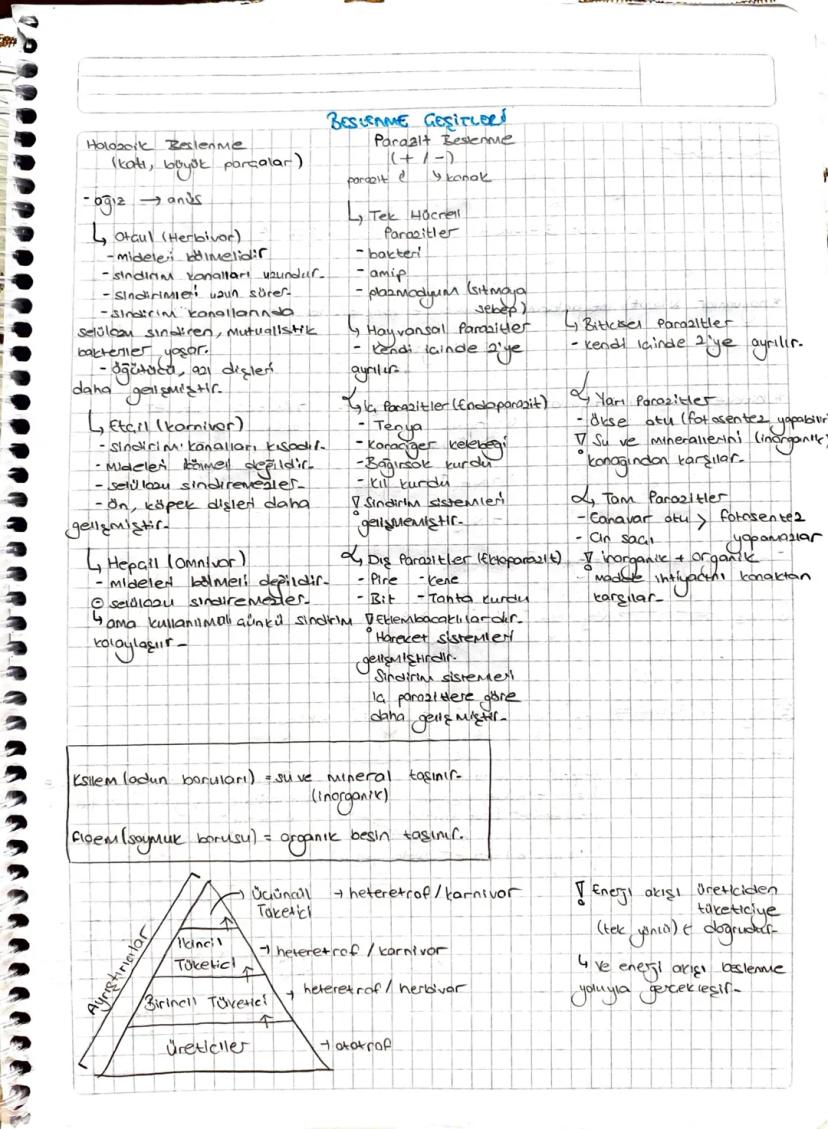 BESLENME ÇEŞİTLERİ
Holozoik Beslenme
(katı, büyük parçalar)
- ağız → anüs
↳ Otçul (Herbivor)
- mideleri bölmelidir
- sindirim kanalları uzundur.
- sindirimleri uzun sürer.
- sindirim kanallarında
selülozu sindiren, mutualistik
bakteriler yaşar.
- Öğütücü, azı dişleri
daha gelişmiştir.
↳ Etçil (karnivor)
- sindirim kanalları kısadır.
- Mideleri bölmeli değildir.
- selülozu sindiremezler.
- Ön, köpek dişleri daha
gelişmiştir.
↳ Hepçil (Omnivor)
- mideleri bölmeli değildir.
selülozu sindiremezler.
↳ ama kullanılmalı çünkü sindirim
kolaylaşır.
Parazit Beslenme
(+ / -)
parazit konak
↳ Tek Hücreli
Parazitler
- bakteri
- amip
- plazmodyum (sıtmaya
sebep)
↳ Hayvansal Parazitler
- Kendi içinde 2'ye
ayrılır.
İç Parazitler (Endoparazit)
- Tenya
- Karaciğer kelebeği
- Bağırsak kurdu
- Kıl kurdu
! Sindirim sistemleri
gelişmemiştir.
Dış Parazitler (Ektoparazit)
- Pire - Kene
- Bit - Tahta kurdu
! Eklembacaklılardır.
Hareket sistemleri
gelişmiştirdir.
Sindirim sistemleri
iç parazitlere göre
daha gelişmiştir.
↳ Bitkisel Parazitler
- kendi içinde 2'ye ayrılır.
Yarı Parazitler
- Ökse otu (fotosentez yapabilir)
! Su ve minerallerini (inorganik)
konağından karşılar.
Tam Parazitler
- Canavar otu > fotosentez
- Cin saçı yapamazlar
! inorganik + organik
madde ihtiyacını konaktan
karşılar.
Ksilem (odun boruları) = su ve mineral taşınır.
(inorganik)
Floem (soymuk borusu) = organik besin taşınır.
Ayrıştırıcılar
Üçüncül → heteretrof / karnivor
Tüketici
İkincil
Tüketici → heteretrof / karnivor
Birincil Tüketici → heteretrof / herbivor
Üreticiler → ototrof
! Enerji akışı üreticiden
tüketiciye
(tek yönlü) ← doğrudur.
↳ ve enerji akışı beslenme
yoluyla gerçekleşir.